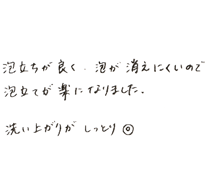 泡立ちが良く、泡が消えにくいので
泡立てが楽になりました.
洗い上がりがしっとり◎